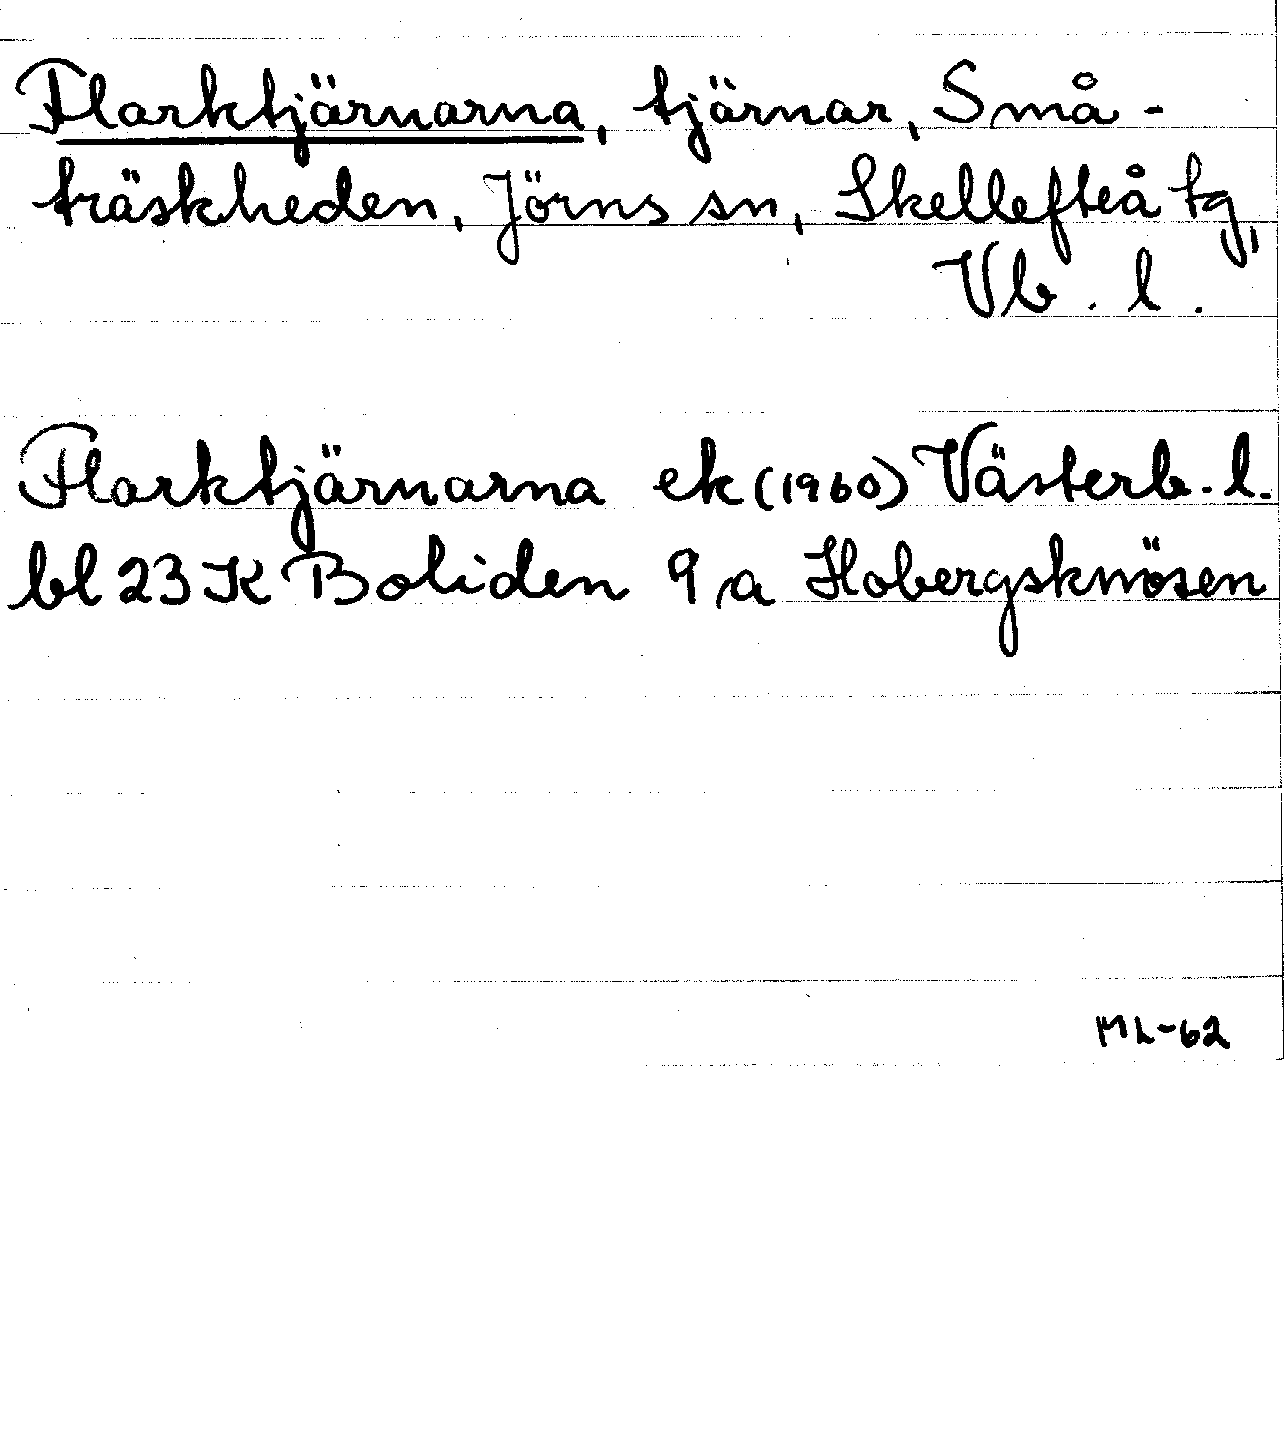 Flarktjärnarna, tjärnar, Små-
träskheden, Jörns sn, Skellefteå tg,
Vb. l.
Flarktjärnarna ek (1960) Västerb. l.
bl 23 K Boliden 9 a Hobergsknösen
ML-62